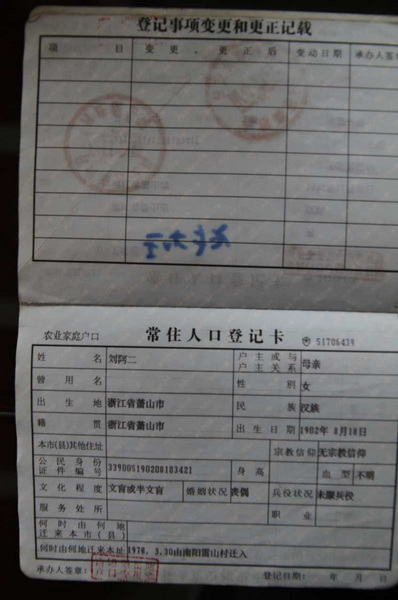 登记事项变更和更正记载
项 目 变更、更正后 变动日期 承办人签章
农业家庭户口 常住人口登记卡 51706439
姓 名 刘阿二 户主或与户主关系 母亲
曾用名 性别 女
出生地 浙江省萧山市 民族 汉族
籍贯 浙江省萧山市 出生日期 1902年8月18日
本市(县)其他住址 宗教信仰 无宗教信仰
公民身份证件编号 339005190208183421 身高 血型 不明
文化程度 文盲或半文盲 婚姻状况 丧偶 兵役状况 未服兵役
服务处所 职业
何时由何地迁来本市(县)
何时由何地迁来本址 1978. 3.30由南阳雷山村迁入
承办人签章: 登记日期: 年 月 日